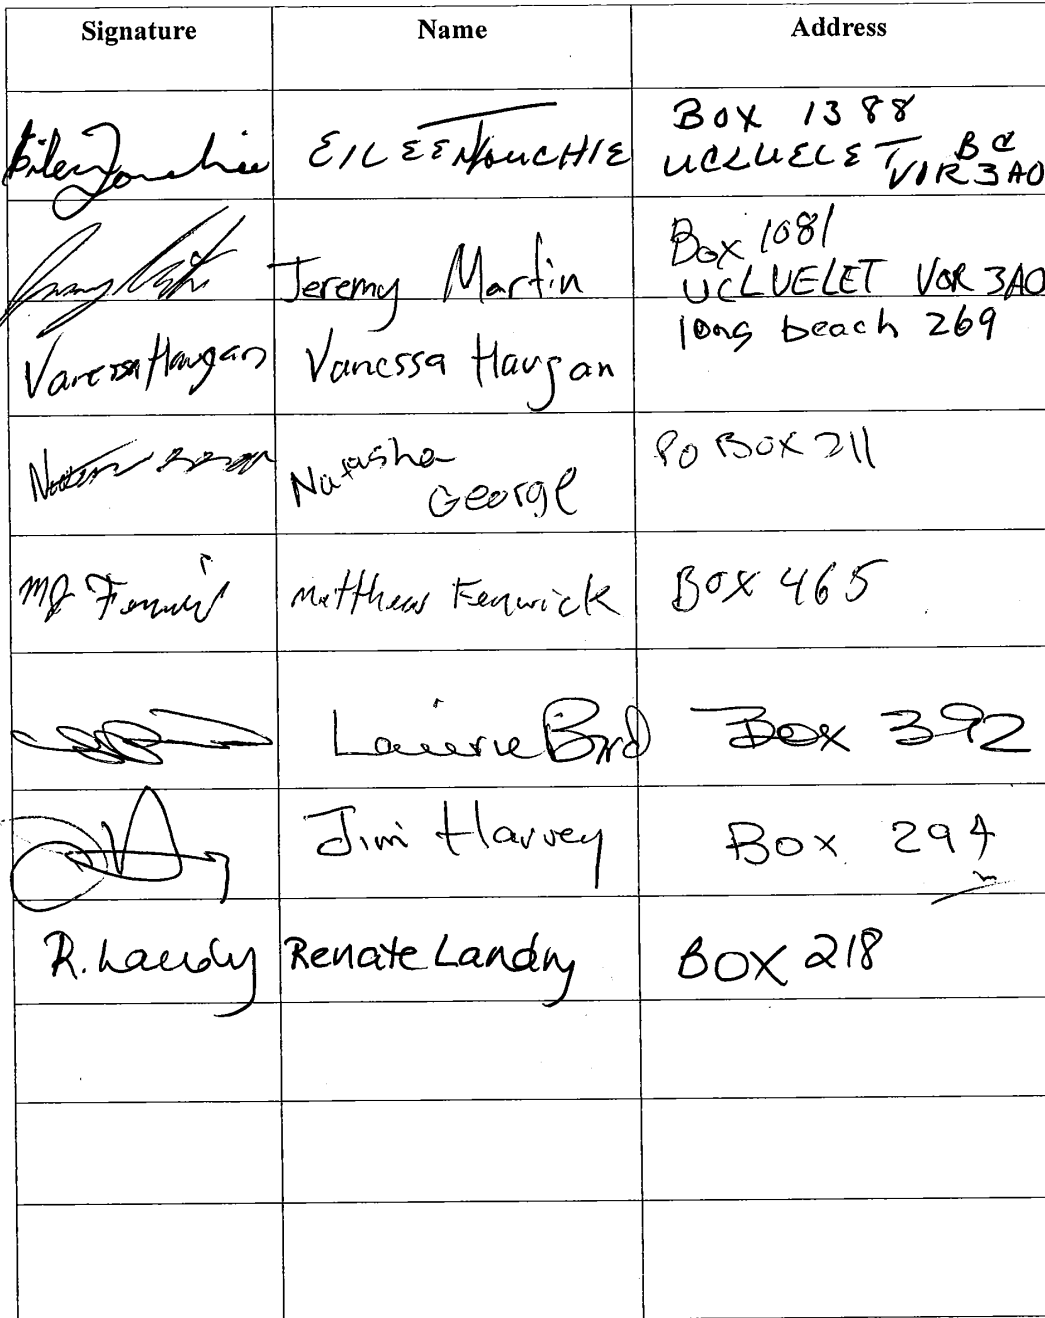 Signature Name Address
Eileen Touchie EILEEN TOUCHIE BOX 1388
UCLUELET BC
V1R 3A0
Jeremy Martin Box 1081
UCLUELET V0R 3A0
Vanessa Haugan Vanessa Haugan long beach 269
Natasha PO BOX 211
George
MJ Matthew Fenwick BOX 465
Laurie Bird Box 392
Jim Harvey Box 294
R. Landry Renate Landry BOX 218